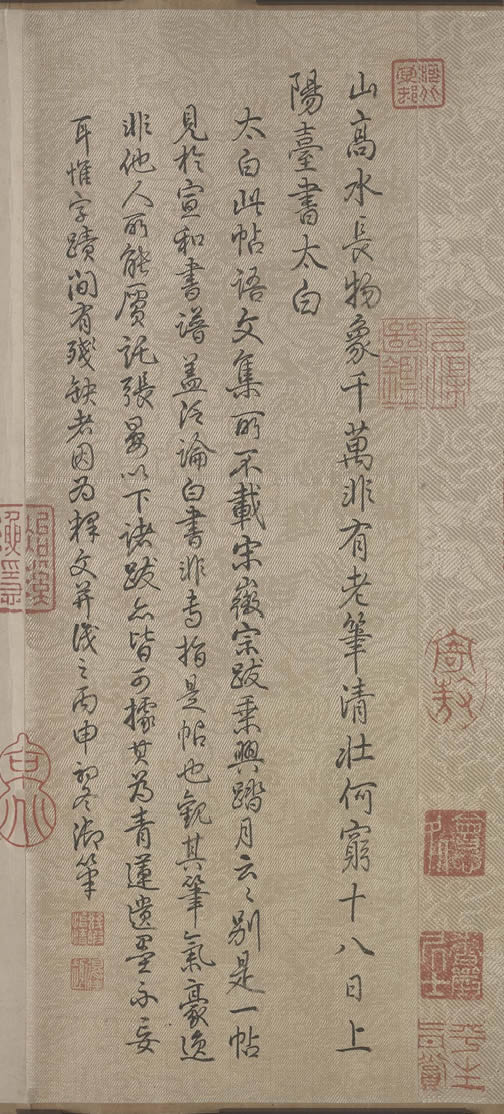 山高水長物象千萬非有老筆清壯何窮十八日上
陽臺書太白
太白此帖語文集所不載宋徽宗跋乘興踏月云〻別是一帖
見於宣和書譜蓋泛論白書非專指是帖也觀其筆氣豪逸
非他人所能贋託張晏以下諸跋亦皆可據其為青蓮遺墨不妄
耳惟字蹟間有殘缺者因為釋文并識之丙申初冬御筆